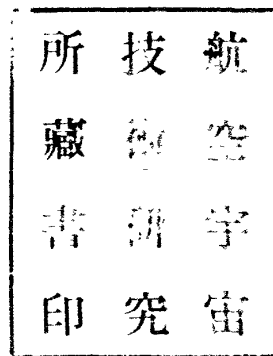 航空宇宙
技術研究
所藏書印